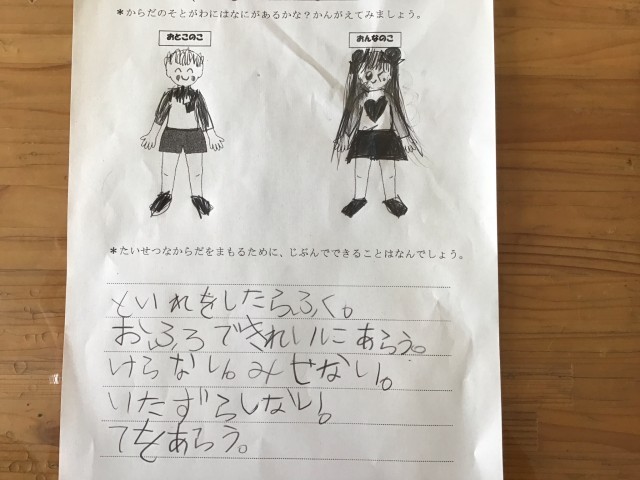 ＊からだのそとがわにはなにがあるかな？かんがえてみましょう。
おとこのこ
おんなのこ
＊たいせつなからだをまもるために、じぶんでできることはなんでしょう。
といれをしたらふく。
おふろできれいにあらう。
けらない。みせない。
いたずらしない。
てをあらう。